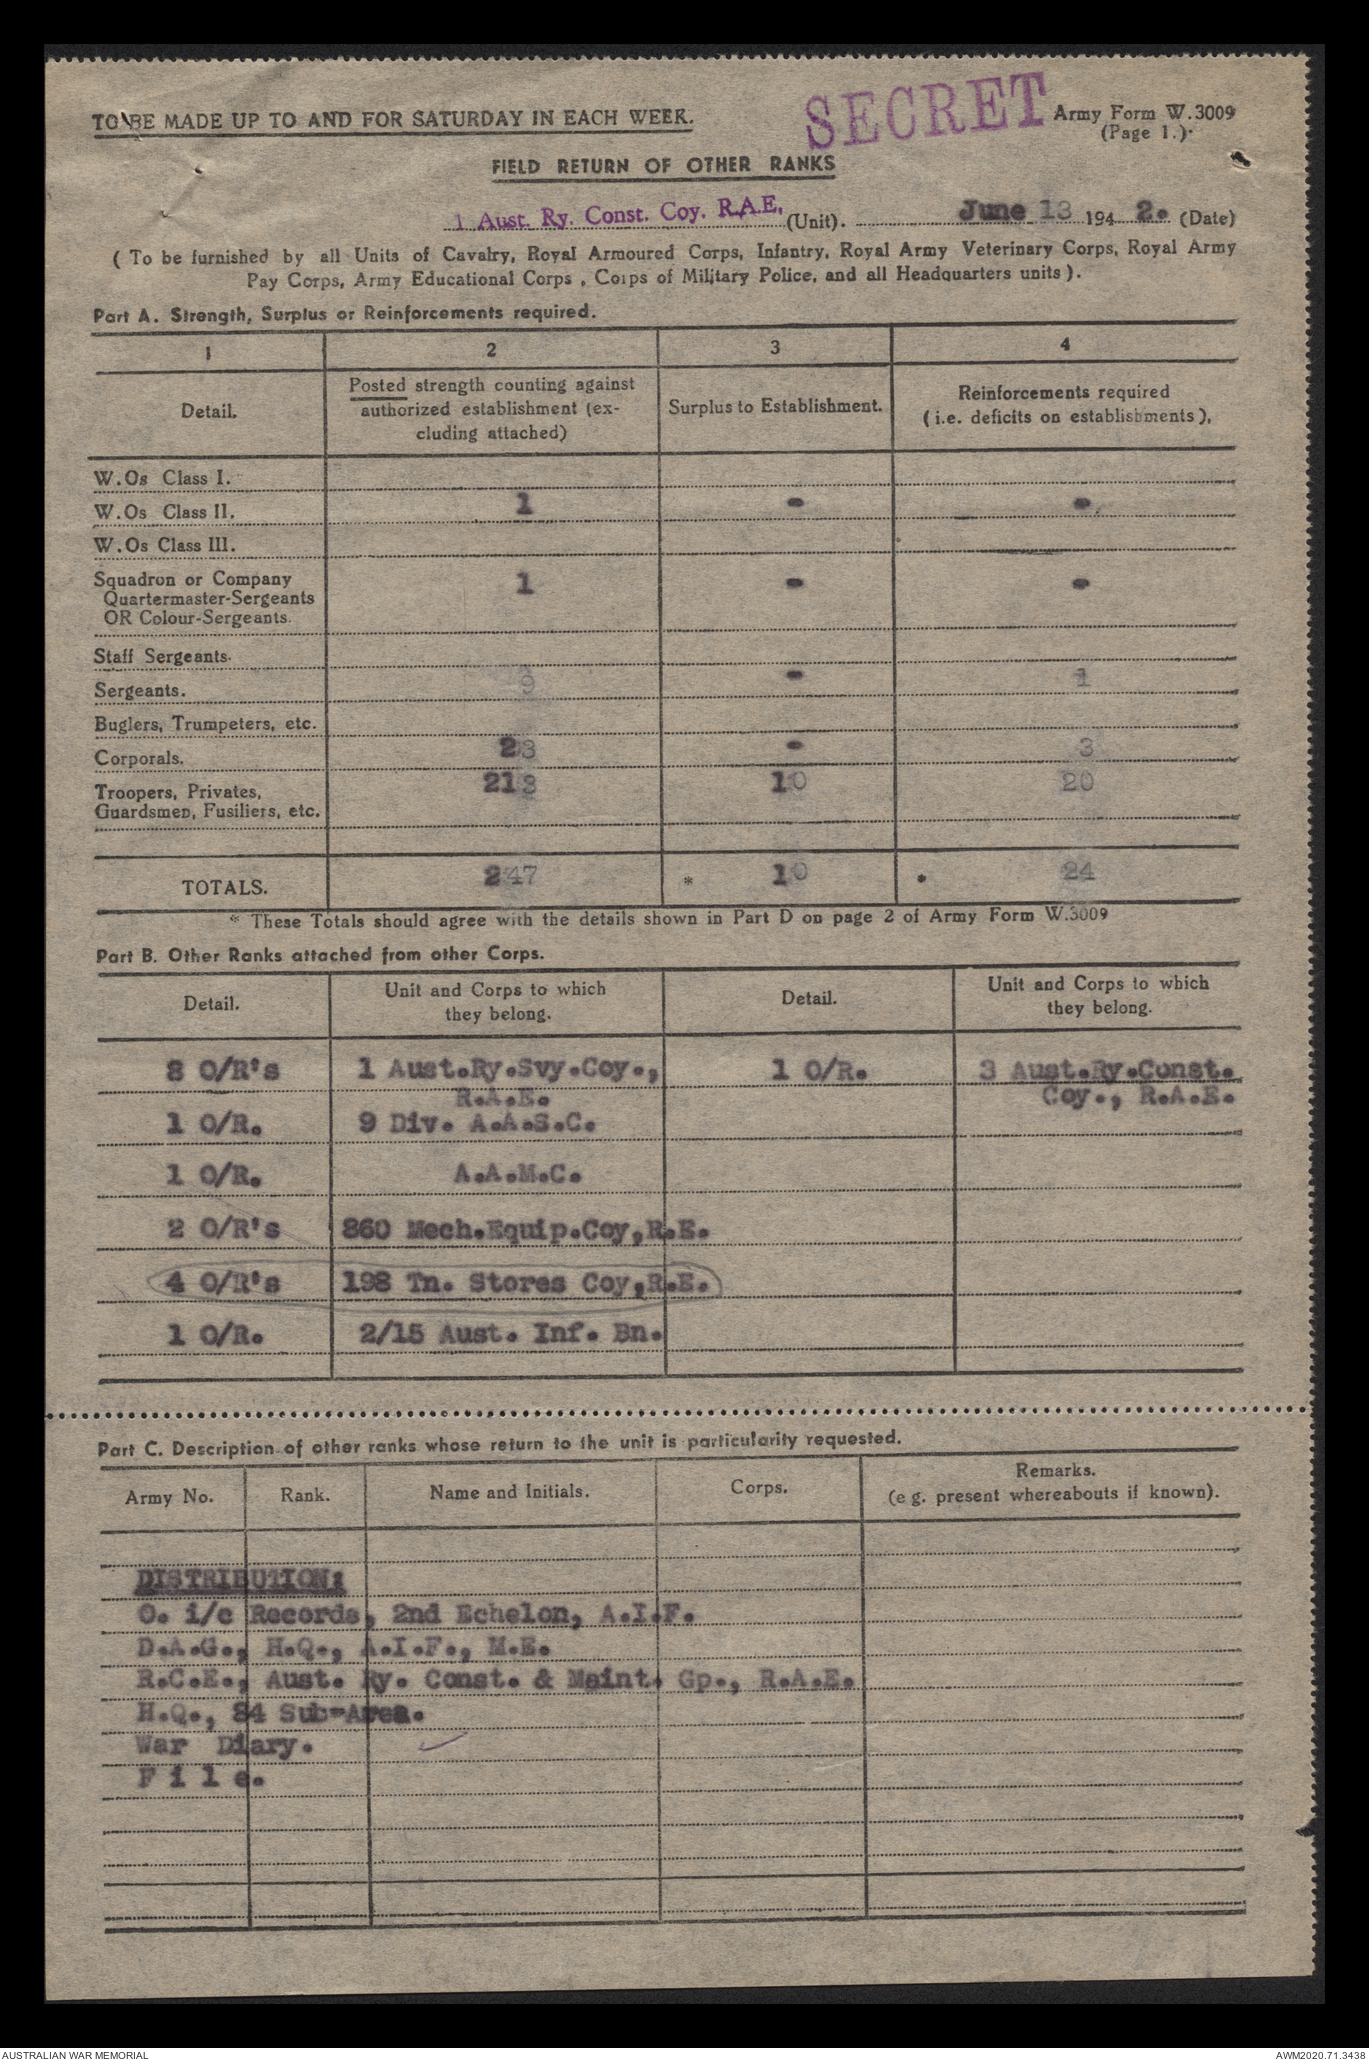 TO BE MADE UP TO AND FOR SATURDAY IN EACH WEEK.
SECRET
Army Form W.3009
(Page 1.)
FIELD RETURN OF OTHER RANKS
1 Aust. Ry. Const. Coy. R.A.E. (Unit). June 13 194 2. (Date)
( To be furnished by all Units of Cavalry, Royal Armoured Corps, Infantry, Royal Army Veterinary Corps, Royal Army
Pay Corps, Army Educational Corps , Corps of Military Police, and all Headquarters units ).
Part A. Strength, Surplus or Reinforcements required.
1 2 3 4
Detail.
Posted strength counting against
authorized establishment (ex-
cluding attached)
Surplus to Establishment.
Reinforcements required
( i.e. deficits on establishments ),
W.Os Class I.
W.Os Class II. 1 - -
W.Os Class III.
Squadron or Company 1 - -
Quartermaster-Sergeants
OR Colour-Sergeants.
Staff Sergeants.
Sergeants. 9 - 1
Buglers, Trumpeters, etc.
Corporals. 23 - 3
Troopers, Privates, 213 10 20
Guardsmen, Fusiliers, etc.
TOTALS. 247 * 10 * 24
* These Totals should agree with the details shown in Part D on page 2 of Army Form W.3009
Part B. Other Ranks attached from other Corps.
Detail.
Unit and Corps to which
they belong.
Detail.
Unit and Corps to which
they belong.
8 O/R's 1 Aust.Ry.Svy.Coy., 1 O/R. 3 Aust.Ry.Const.
R.A.E. Coy., R.A.E.
1 O/R. 9 Div. A.A.S.C.
1 O/R. A.A.M.C.
2 O/R's 860 Mech.Equip.Coy,R.E.
4 O/R's 198 Tn. Stores Coy,R.E.
1 O/R. 2/15 Aust. Inf. Bn.
Part C. Description of other ranks whose return to the unit is particularity requested.
Army No. Rank. Name and Initials. Corps.
Remarks.
(e g. present whereabouts if known).
DISTRIBUTION:
O. i/c Records, 2nd Echelon, A.I.F.
D.A.G., H.Q., A.I.F., M.E.
R.C.E., Aust. Ry. Const. & Maint. Gp., R.A.E.
H.Q., 84 Sub-Area.
War Diary.
F i l e.
AUSTRALIAN WAR MEMORIAL
AWM2020.71.3438